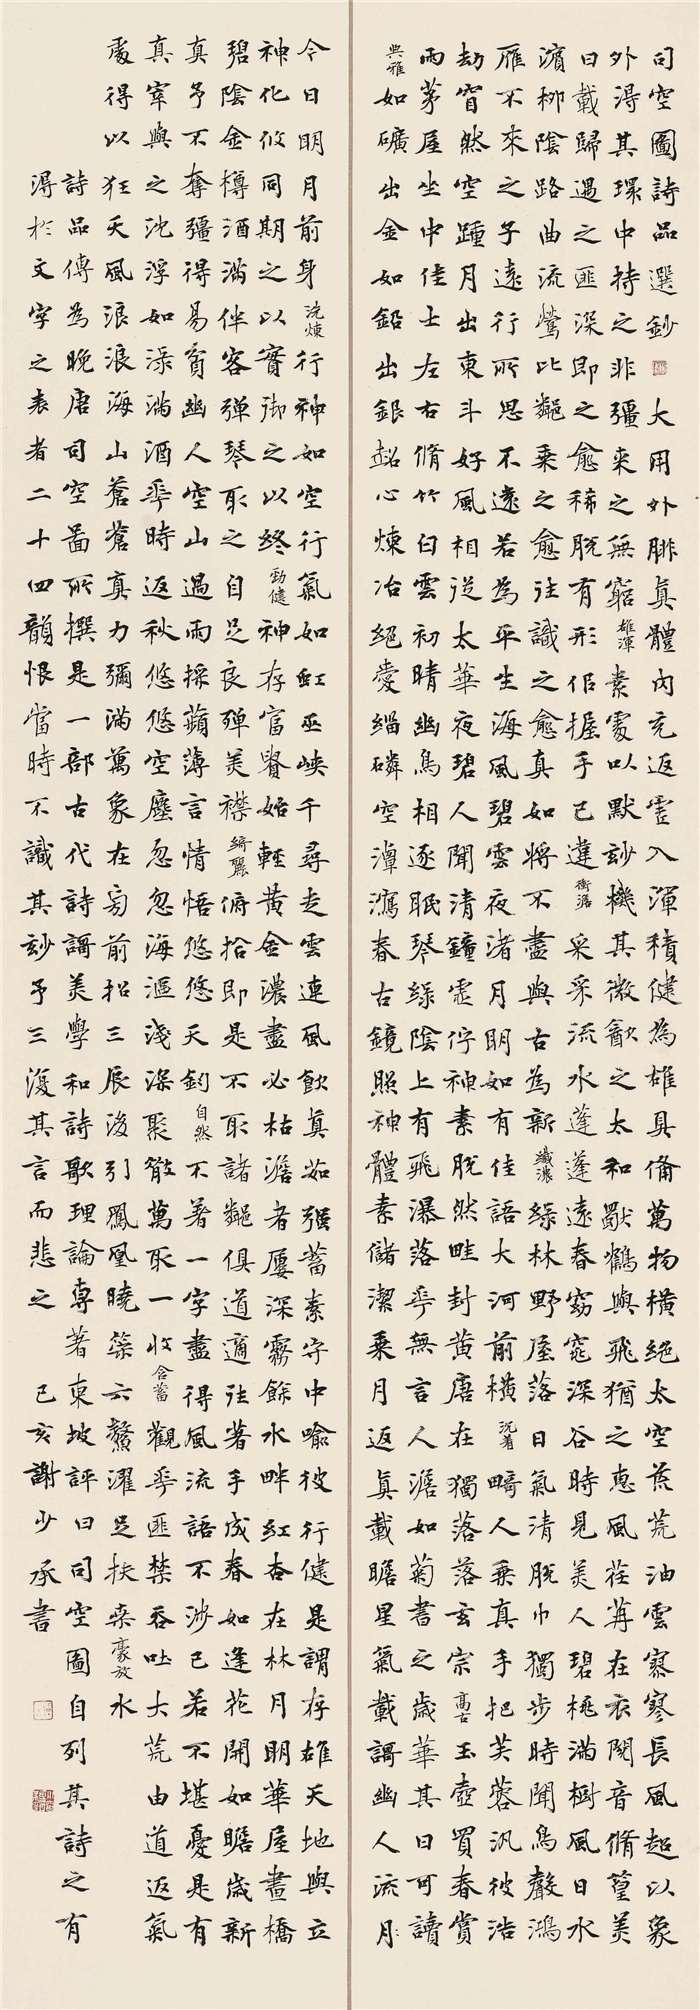 司空圖詩品選鈔 大用外腓真體內充返虛入渾積健為雄具備萬物橫絕太空荒荒油雲寥寥長風超以象
外得其環中持之非彊來之無窮雄渾素處以默妙機其微飲之太和獨鶴與飛猶之惠風荏苒在衣閱音脩篁美
曰載歸遇之匪深即之愈稀脫有形似握手已違衝澹采采流水蓬蓬遠春窈窕深谷時見美人碧桃滿樹風日水
濱柳陰路曲流鶯比鄰乘之愈往識之愈真如將不盡與古為新纖濃綠林野屋落日氣清脫巾獨步時聞鳥聲鴻
雁不來之子遠行所思不遠若為平生海風碧雲夜渚月明如有佳語大河前橫沉著畸人乘真手把芙蓉汎彼浩
劫窅然空蹤月出東斗好風相從太華夜碧人聞清鐘虛佇神素脫然畦封黃唐在獨落落玄宗高古玉壺買春賞
雨茅屋坐中佳士左右脩竹白雲初晴幽鳥相逐眠琴綠陰上有飛瀑落花無言人澹如菊書之歲華其曰可讀
典雅如礦出金如鉛出銀超心煉冶絕愛緇磷空潭瀉春古鏡照神體素儲潔乘月返真載瞻星氣載謌幽人流月
今日明月前身洗煉行神如空行氣如虹巫峽千尋走雲連風飲真茹強蓄素守中喻彼行健是謂存雄天地與立
神化攸同期之以實御之以終勁健神存富貴始輕黃金濃盡必枯澹者屢深霧餘水畔紅杏在林月明華屋畫橋
碧陰金樽酒滿伴客彈琴取之自足良殫美襟綺麗俯拾即是不取諸鄰俱道適往著手成春如逢花開如瞻歲新
真予不奪彊得易貧幽人空山過雨採蘋薄言情悟悠悠天鈞自然不著一字盡得風流語不涉己若不堪憂是有
真宰與之沈浮如淥滿酒花時返秋悠悠空塵忽忽海漚淺深聚散萬取一收含蓄觀花匪禁吞吐大荒由道返氣
處得以狂天風浪浪海山蒼蒼真力彌滿萬象在旁前招三辰後引鳳凰曉策六鰲濯足扶桑豪放水
詩品傳為晚唐司空圖所撰是一部古代詩謌美學和詩歌理論專著東坡評曰司空圖自列其詩之有
得於文字之表者二十四韻恨當時不識其妙予三復其言而悲之 己亥謝少承書